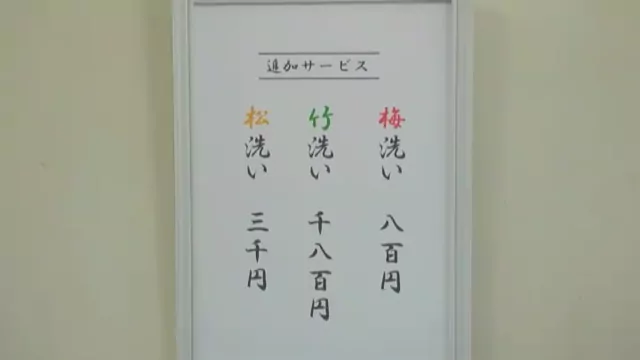 追加サービス
梅洗い 八百円
竹洗い 千八百円
松洗い 三千円